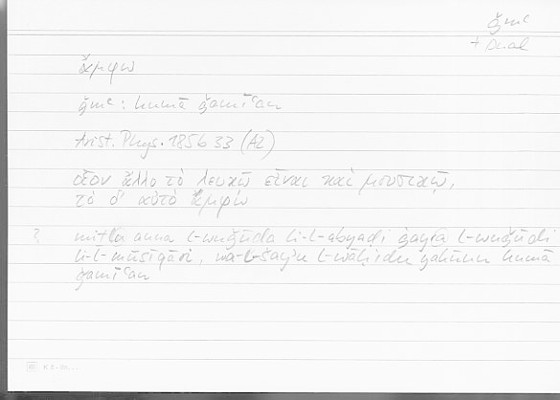 ǧmʿ
+ Dual
ἄμφω
ǧmʿ: humā ǧamīʿan
Arist. Phys. 185b33 (A2)
οἷον ἄλλο τὸ λευκῷ εἶναι καὶ μουσικῷ,
τὸ δ' αὐτὸ ἄμφω
? mitla anna l-wuǧūda li-l-abyaḍi ġayru l-wuǧūdi
li-l-mūsiqāri, wa-l-šayʾu l-wāḥidu yakūnu humā
ǧamīʿan